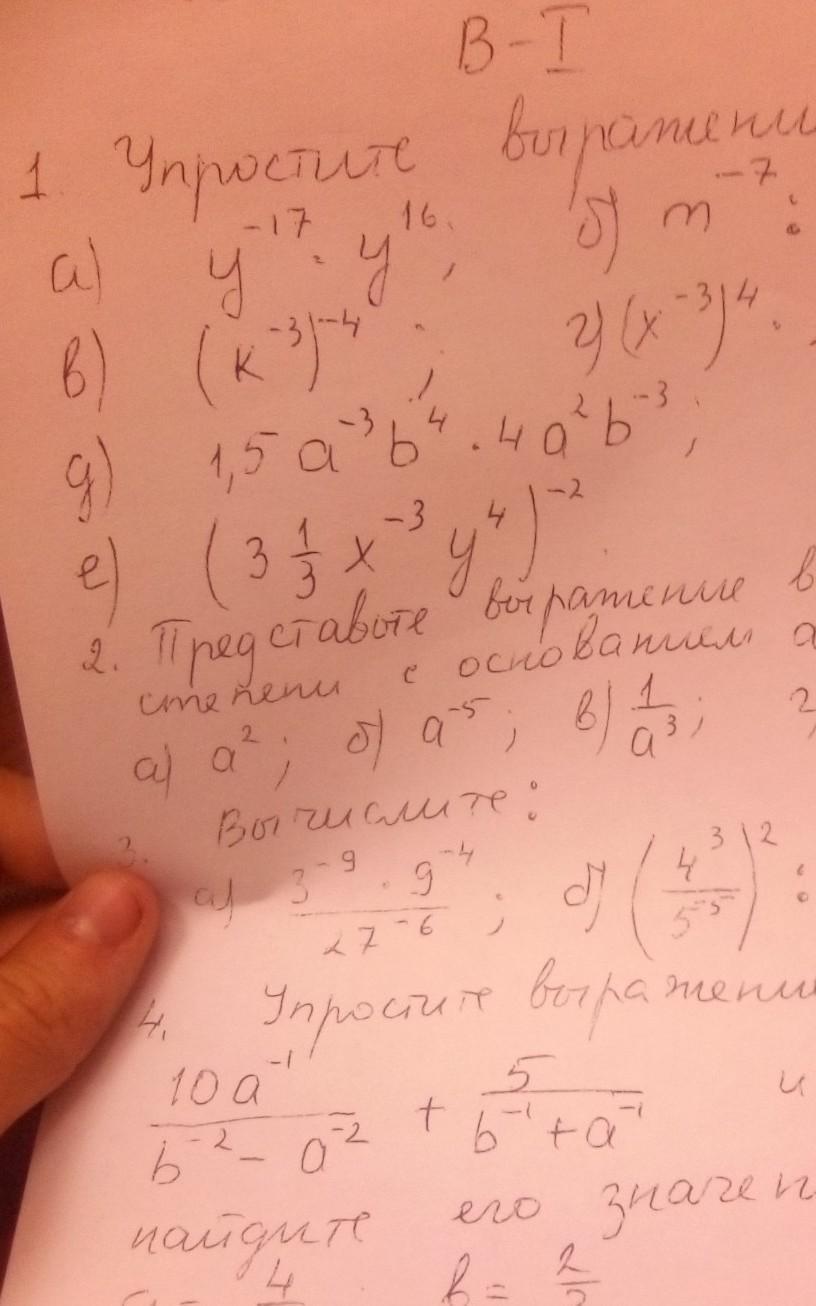 В-I
1. Упростите выражени
а) y⁻¹⁷ · y¹⁶; б) m⁻⁷ :
в) (k⁻³)⁻⁴; г) (x⁻³)⁴ ·
д) 1,5a⁻³b⁴ · 4a²b⁻³;
е) (3 1/3 x⁻³y⁴)⁻²
2. Представьте выражение в
степени с основанием а
а) a²; б) a⁻⁵; в) 1/a³; г
3. Вычислите:
а) (3⁻⁹ · 9⁻⁴)/27⁻⁶; б) (4³/5⁻⁵)² :
4. Упростите выражение
10a⁻¹/(b⁻² - a⁻²) + 5/(b⁻¹ + a⁻¹) и
найдите его значен
b =